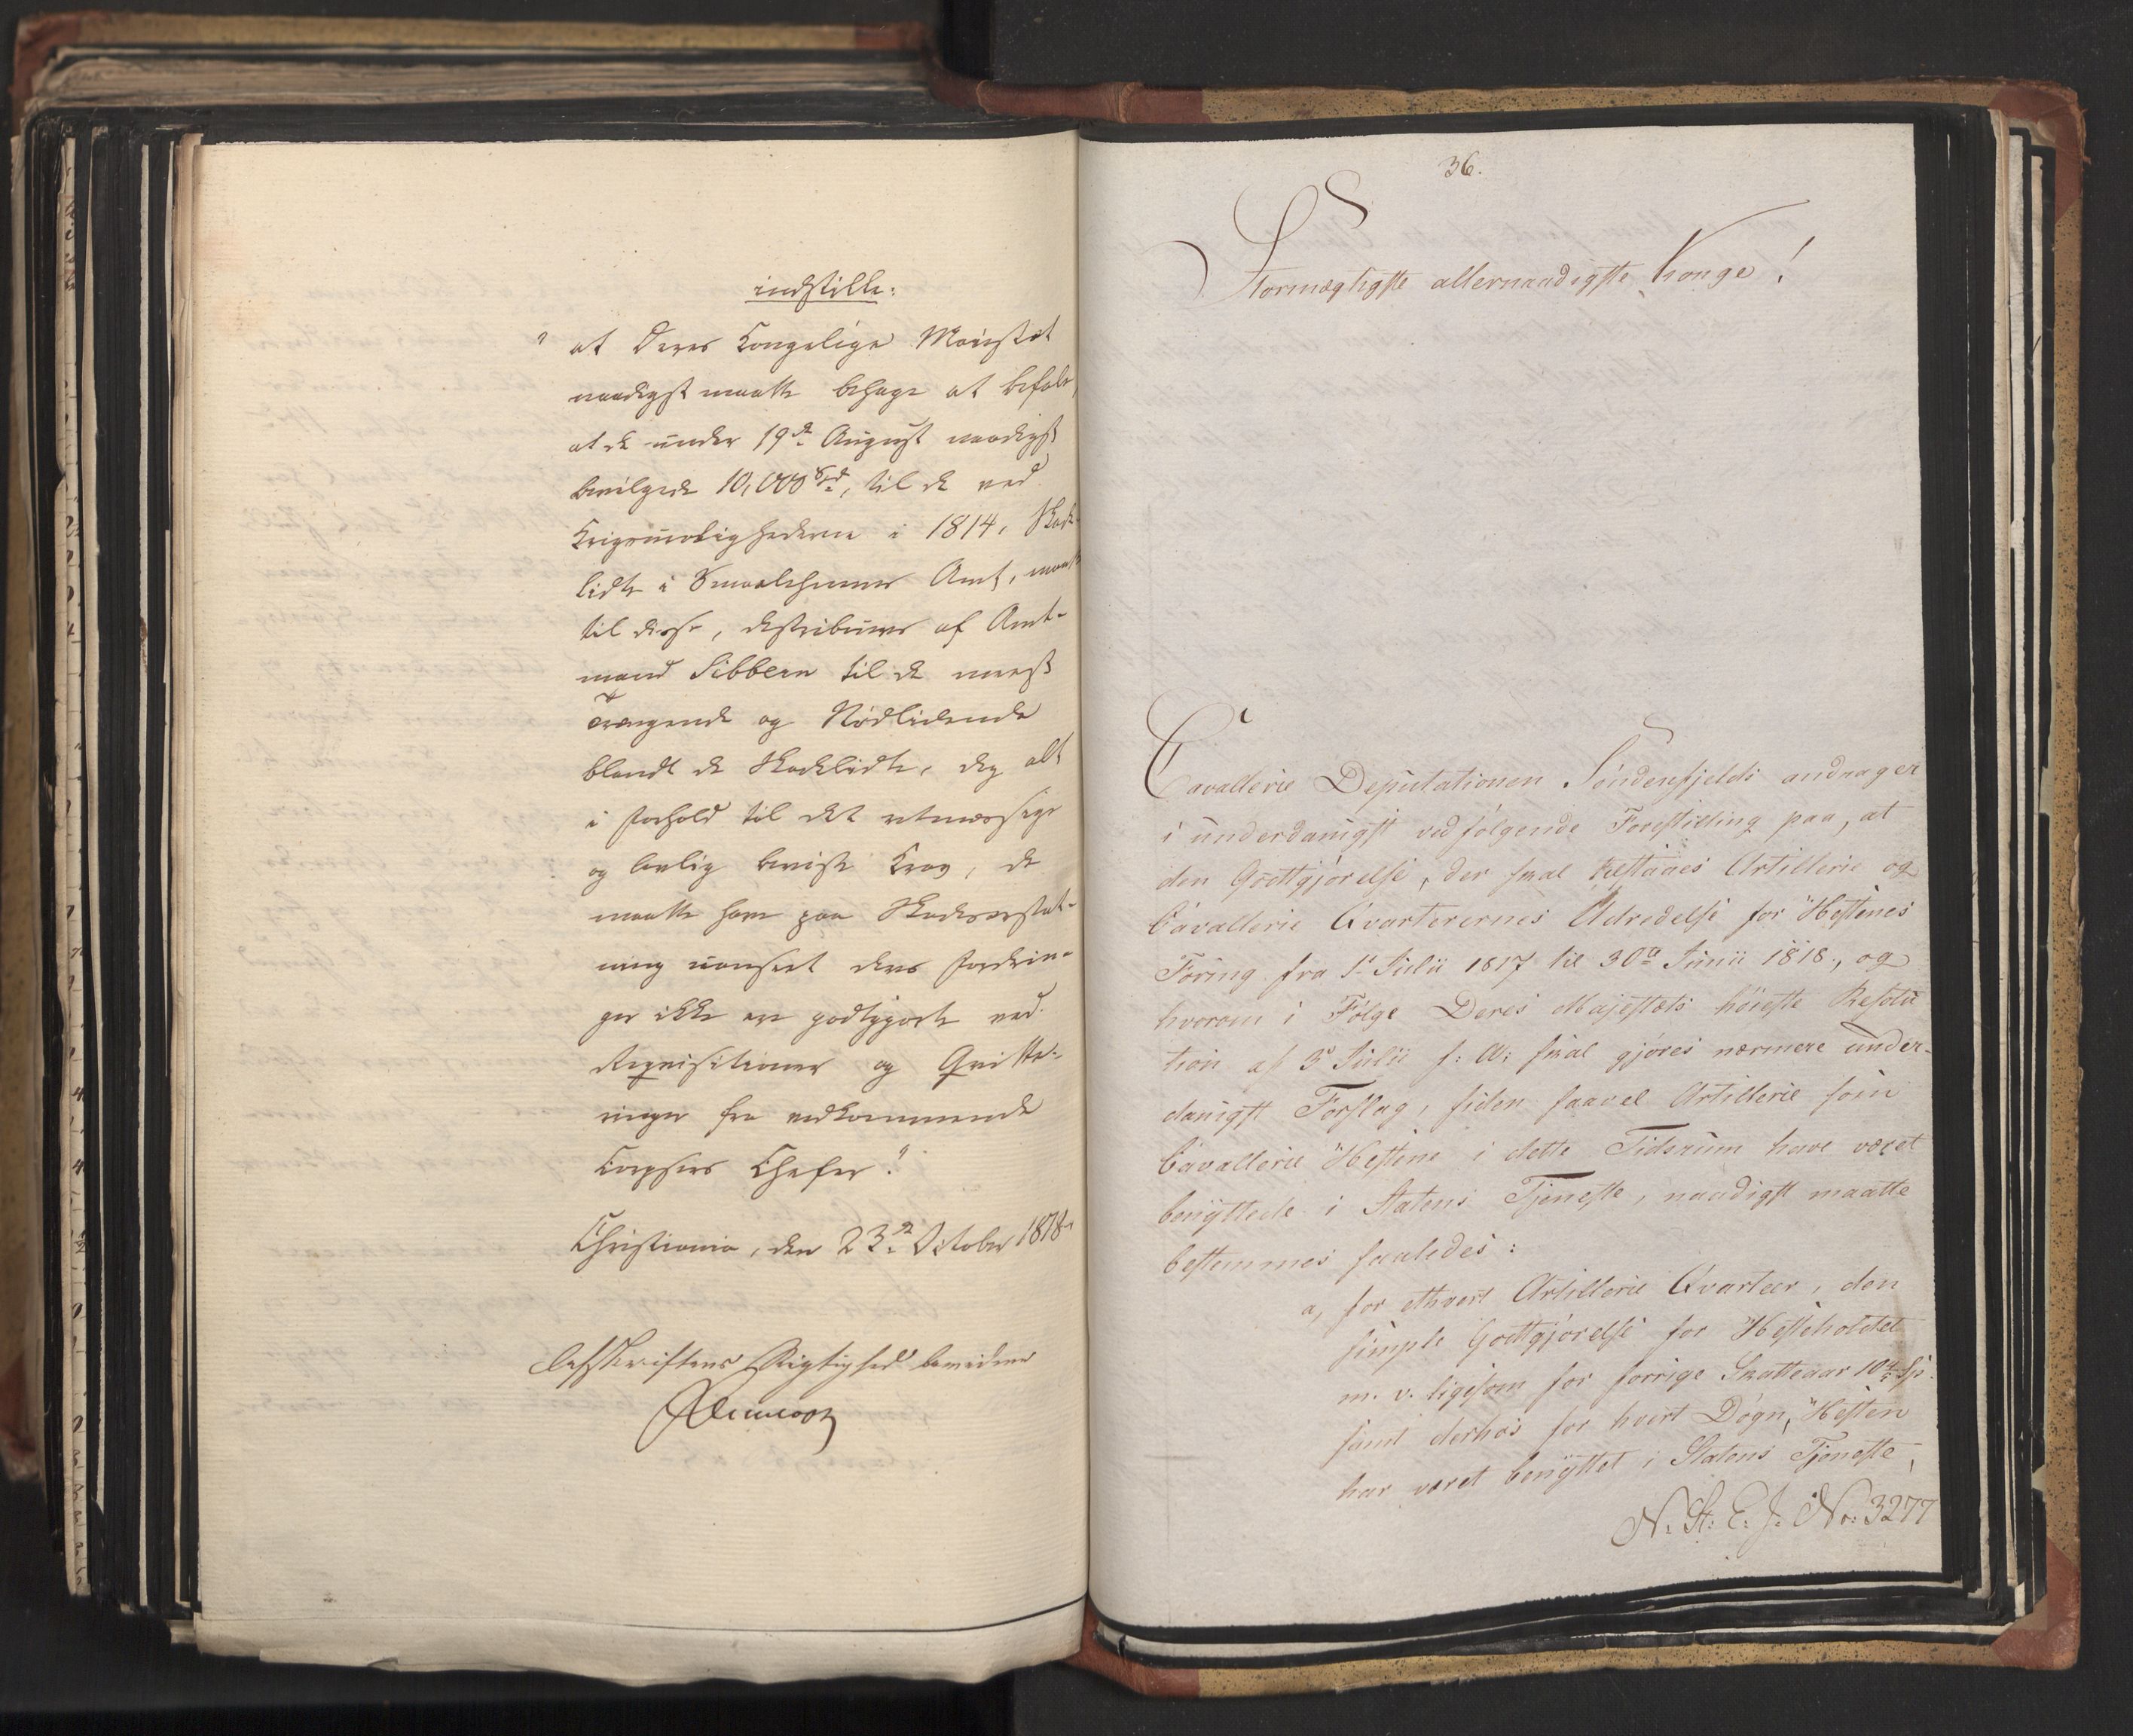 indstille:
" at Deres Kongelige Majestæt
naadigst maatte behage at befale,
at de under 19de August naadigst
bevilgede 10,000 Spd, til de ved
Krigsurolighederne i 1814, Skade
lidte i Smaalehnenes Amt, maatte
til disse, distribueres af Amt-
mand Sibbern til de meest
Trængende og Nødlidende
blandt de Skadelidte, dog alt
i Forhold til det retmæssige
og lovlig beviste Krav, de
maatte have paa Skadeserstat-
ning uanseet deres Fordrin-
ger ikke ere godtgjorte ved
Requisitioner og Qvitte-
ringer fra vedkommende
Corpsers Chefer."
Christiania, den 23de October 1818.
Afskriftens Rigtighed bevidner
36.
Stormægtigste allernaadigste Konge!
Cavallerie Deputationen Søndenfjelds andrager
i underdanigst vedfølgende Forestilling paa, at
den Godtgjørelse, der skal tilstaaes Artillerie og
Cavallerie Qvarterernes Udredelse for Hestenes
Foring fra 1e Julii 1817 til 30te Junii 1818, og
hvorom i Følge Deres Majestæts høieste Resolu
tion af 3de Julii f: A: skal gjøres nærmere under-
danigst Forslag, siden saavel Artillerie som
Cavallerie Hestene i dette Tidsrum have været
benyttede i Statens Tjeneste, naadigst maatte
bestemmes saaledes:
a, for ethvert Artillerie Qvarteer, den
simple Godtgjørelse for Hesteholdet
m. v. ligesom for forrige Skatteaar 10 Sp.
samt derhos for hvert Døgn, Hesten
har været benyttet i Statens Tjeneste,
N: St: E: J: No: 3277